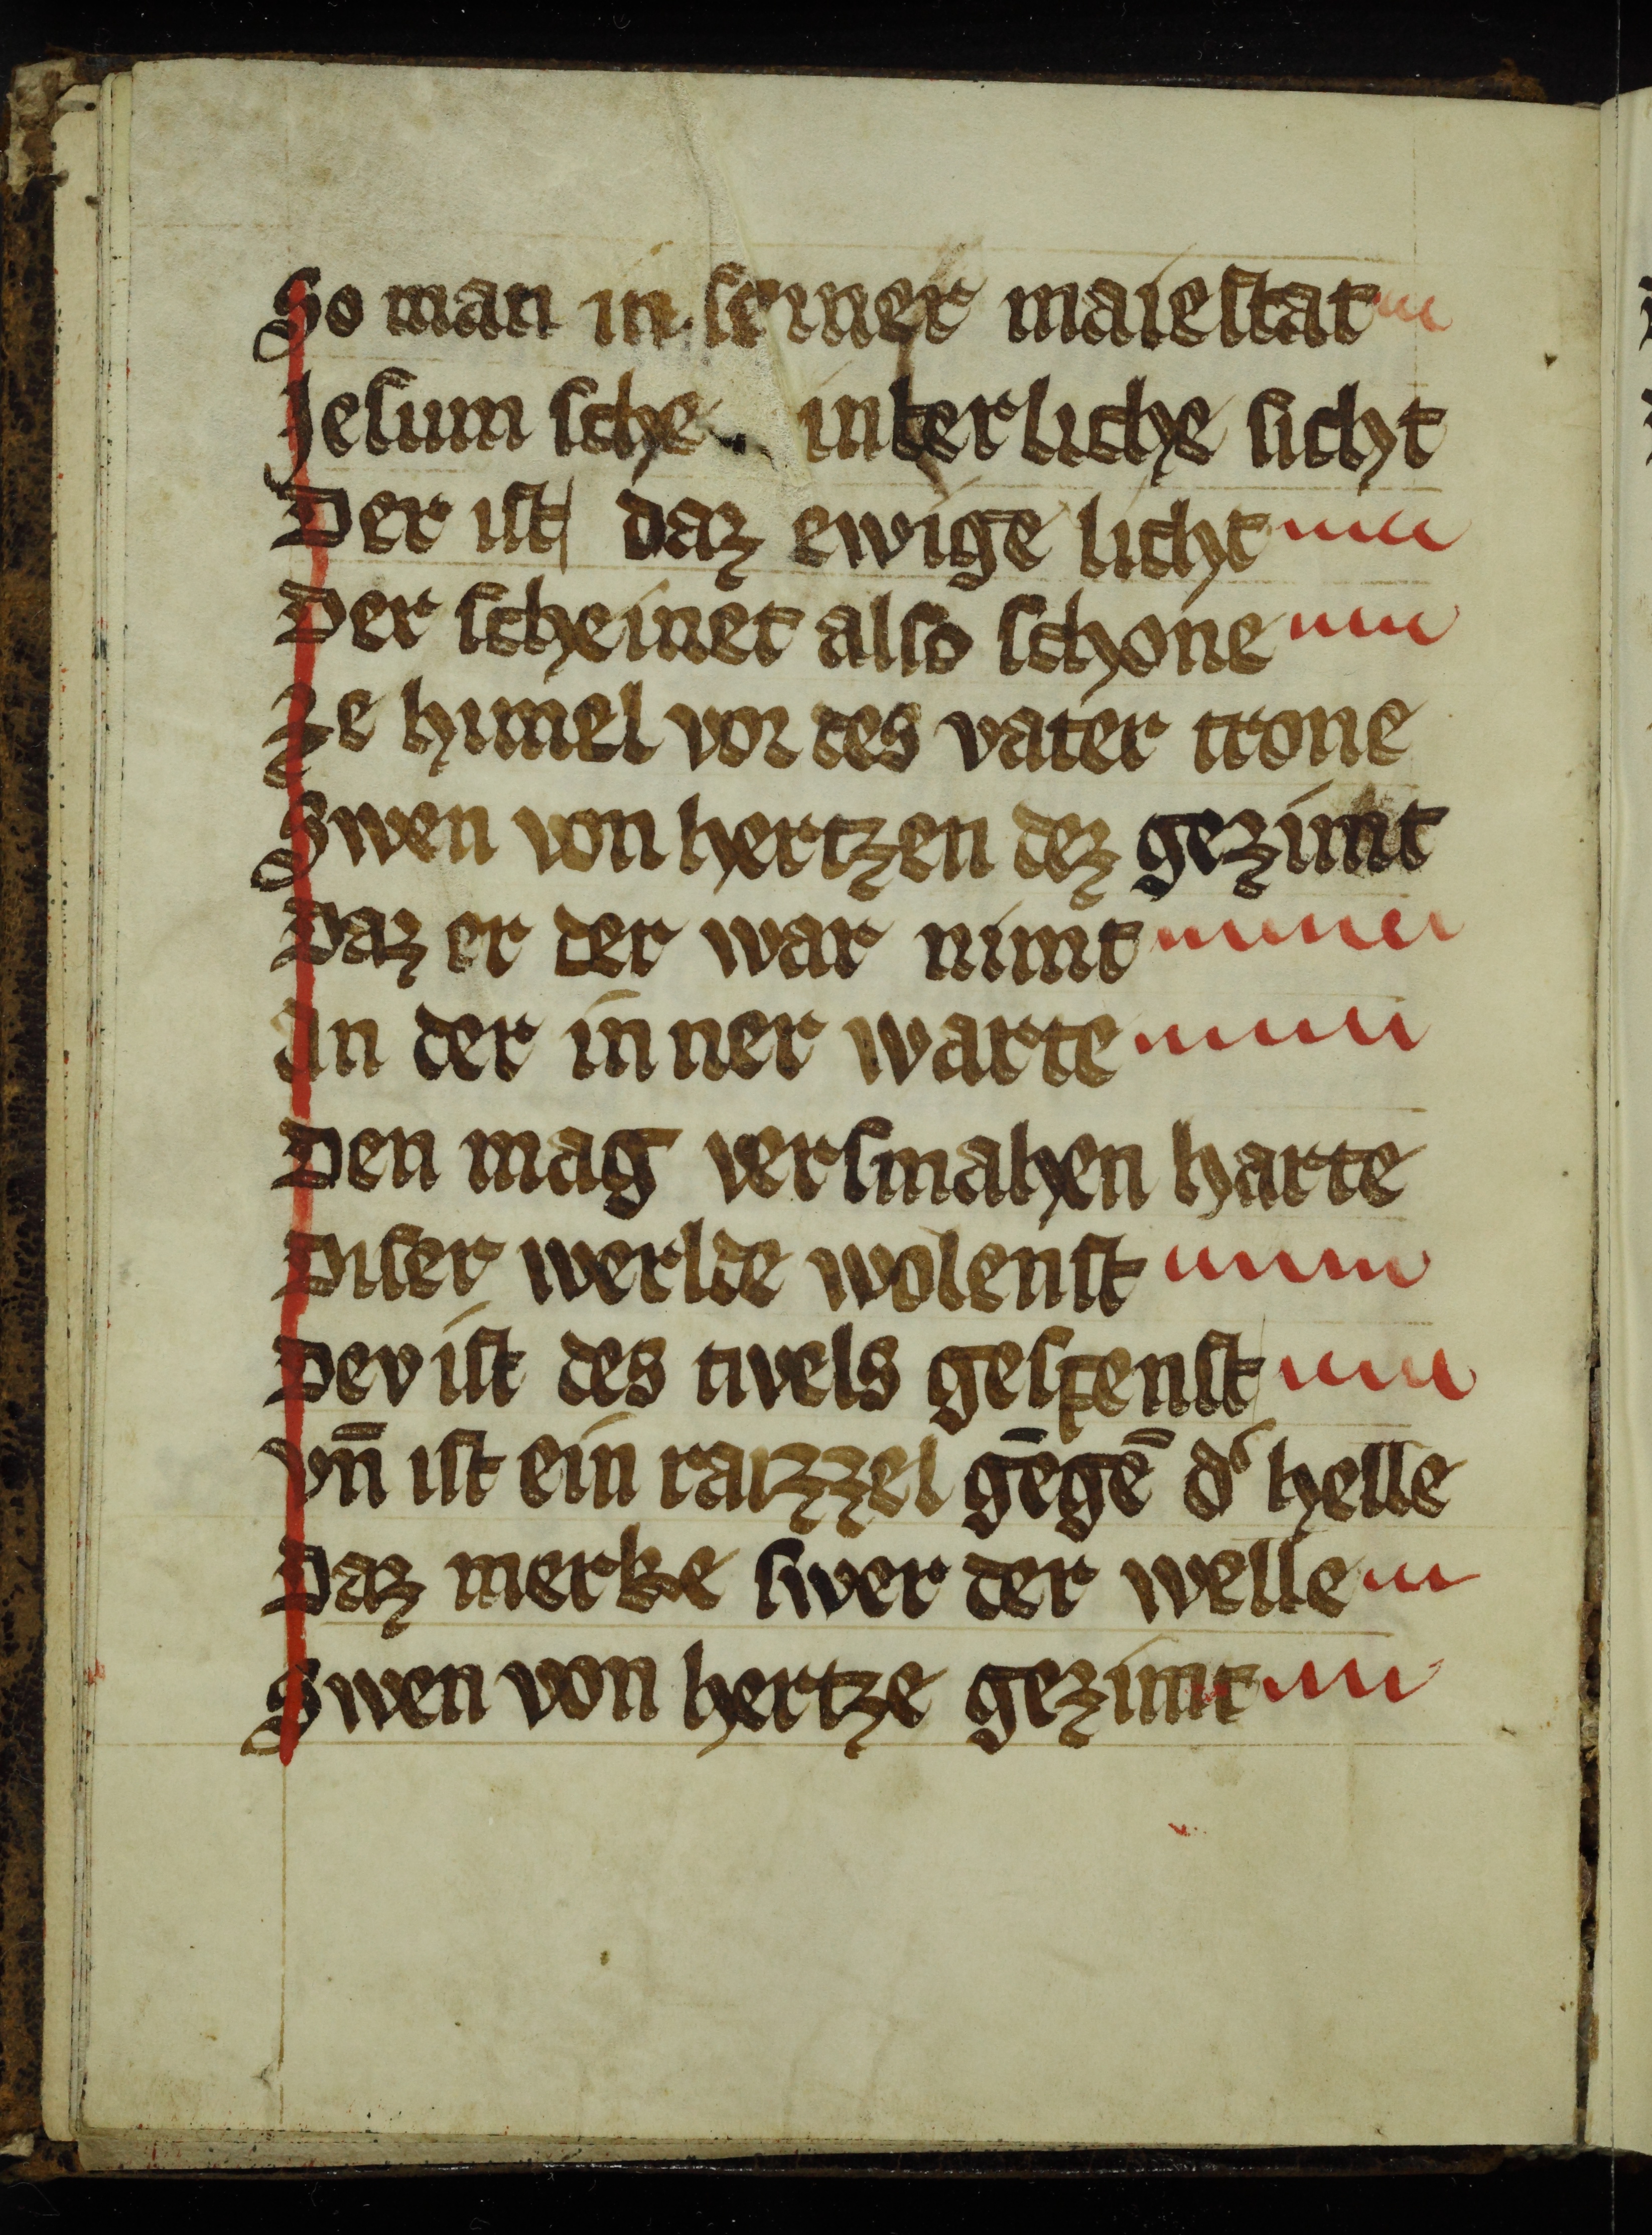 So man in seiner maiestat
Jesum sche interliche sicht
Der ist daz ewige licht
Der scheinet also schone
Ze himel vor des vater trone
Swen von hertzen dez gezimt
Daz er der war nimt
An der inner warte
Den mag versmahen harte
Diser werlde wolenst
Dev ist des tivels gespenst
vn̄ ist ein raizzel gēgē d͛ helle
Daz merke swer der welle
Swen von hertze gezimt